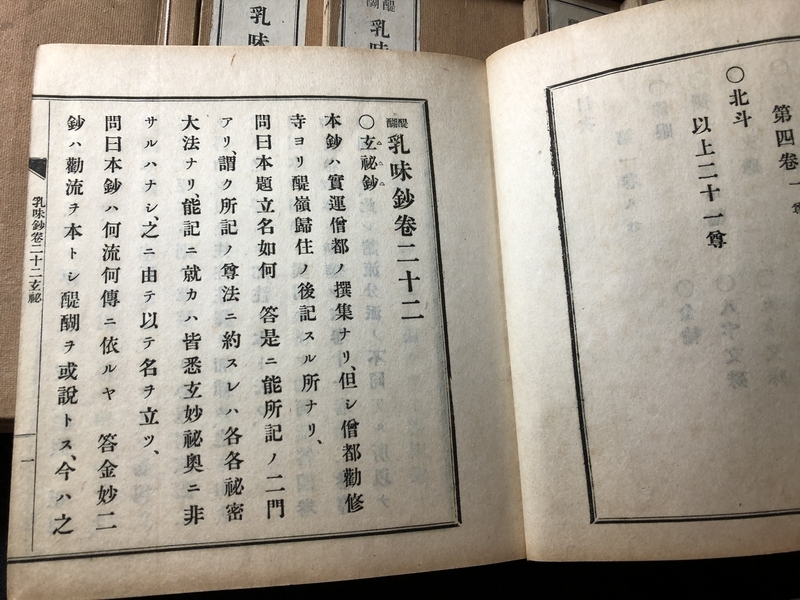 第四卷
○北斗
以上二十一尊
醍醐
乳味鈔卷二十二
○玄祕鈔
本鈔ハ實運僧都ノ撰集ナリ、但シ僧都勸修
寺ヨリ醍嶺歸住ノ後記スル所ナリ、
問曰本題立名如何 答是ニ能所記ノ二門
アリ、謂ク所記ノ尊法ニ約スレハ各各祕密
大法ナリ、能記ニ就カハ皆悉玄妙祕奥ニ非
サルハナシ、之ニ由テ以テ名ヲ立ツ、
問曰本鈔ハ何流何傳ニ依ルヤ 答金妙二
鈔ハ勸流ヲ本トシ醍醐ヲ或說トス、今ハ之
乳味鈔卷二十二玄祕
一
乳味
乳味